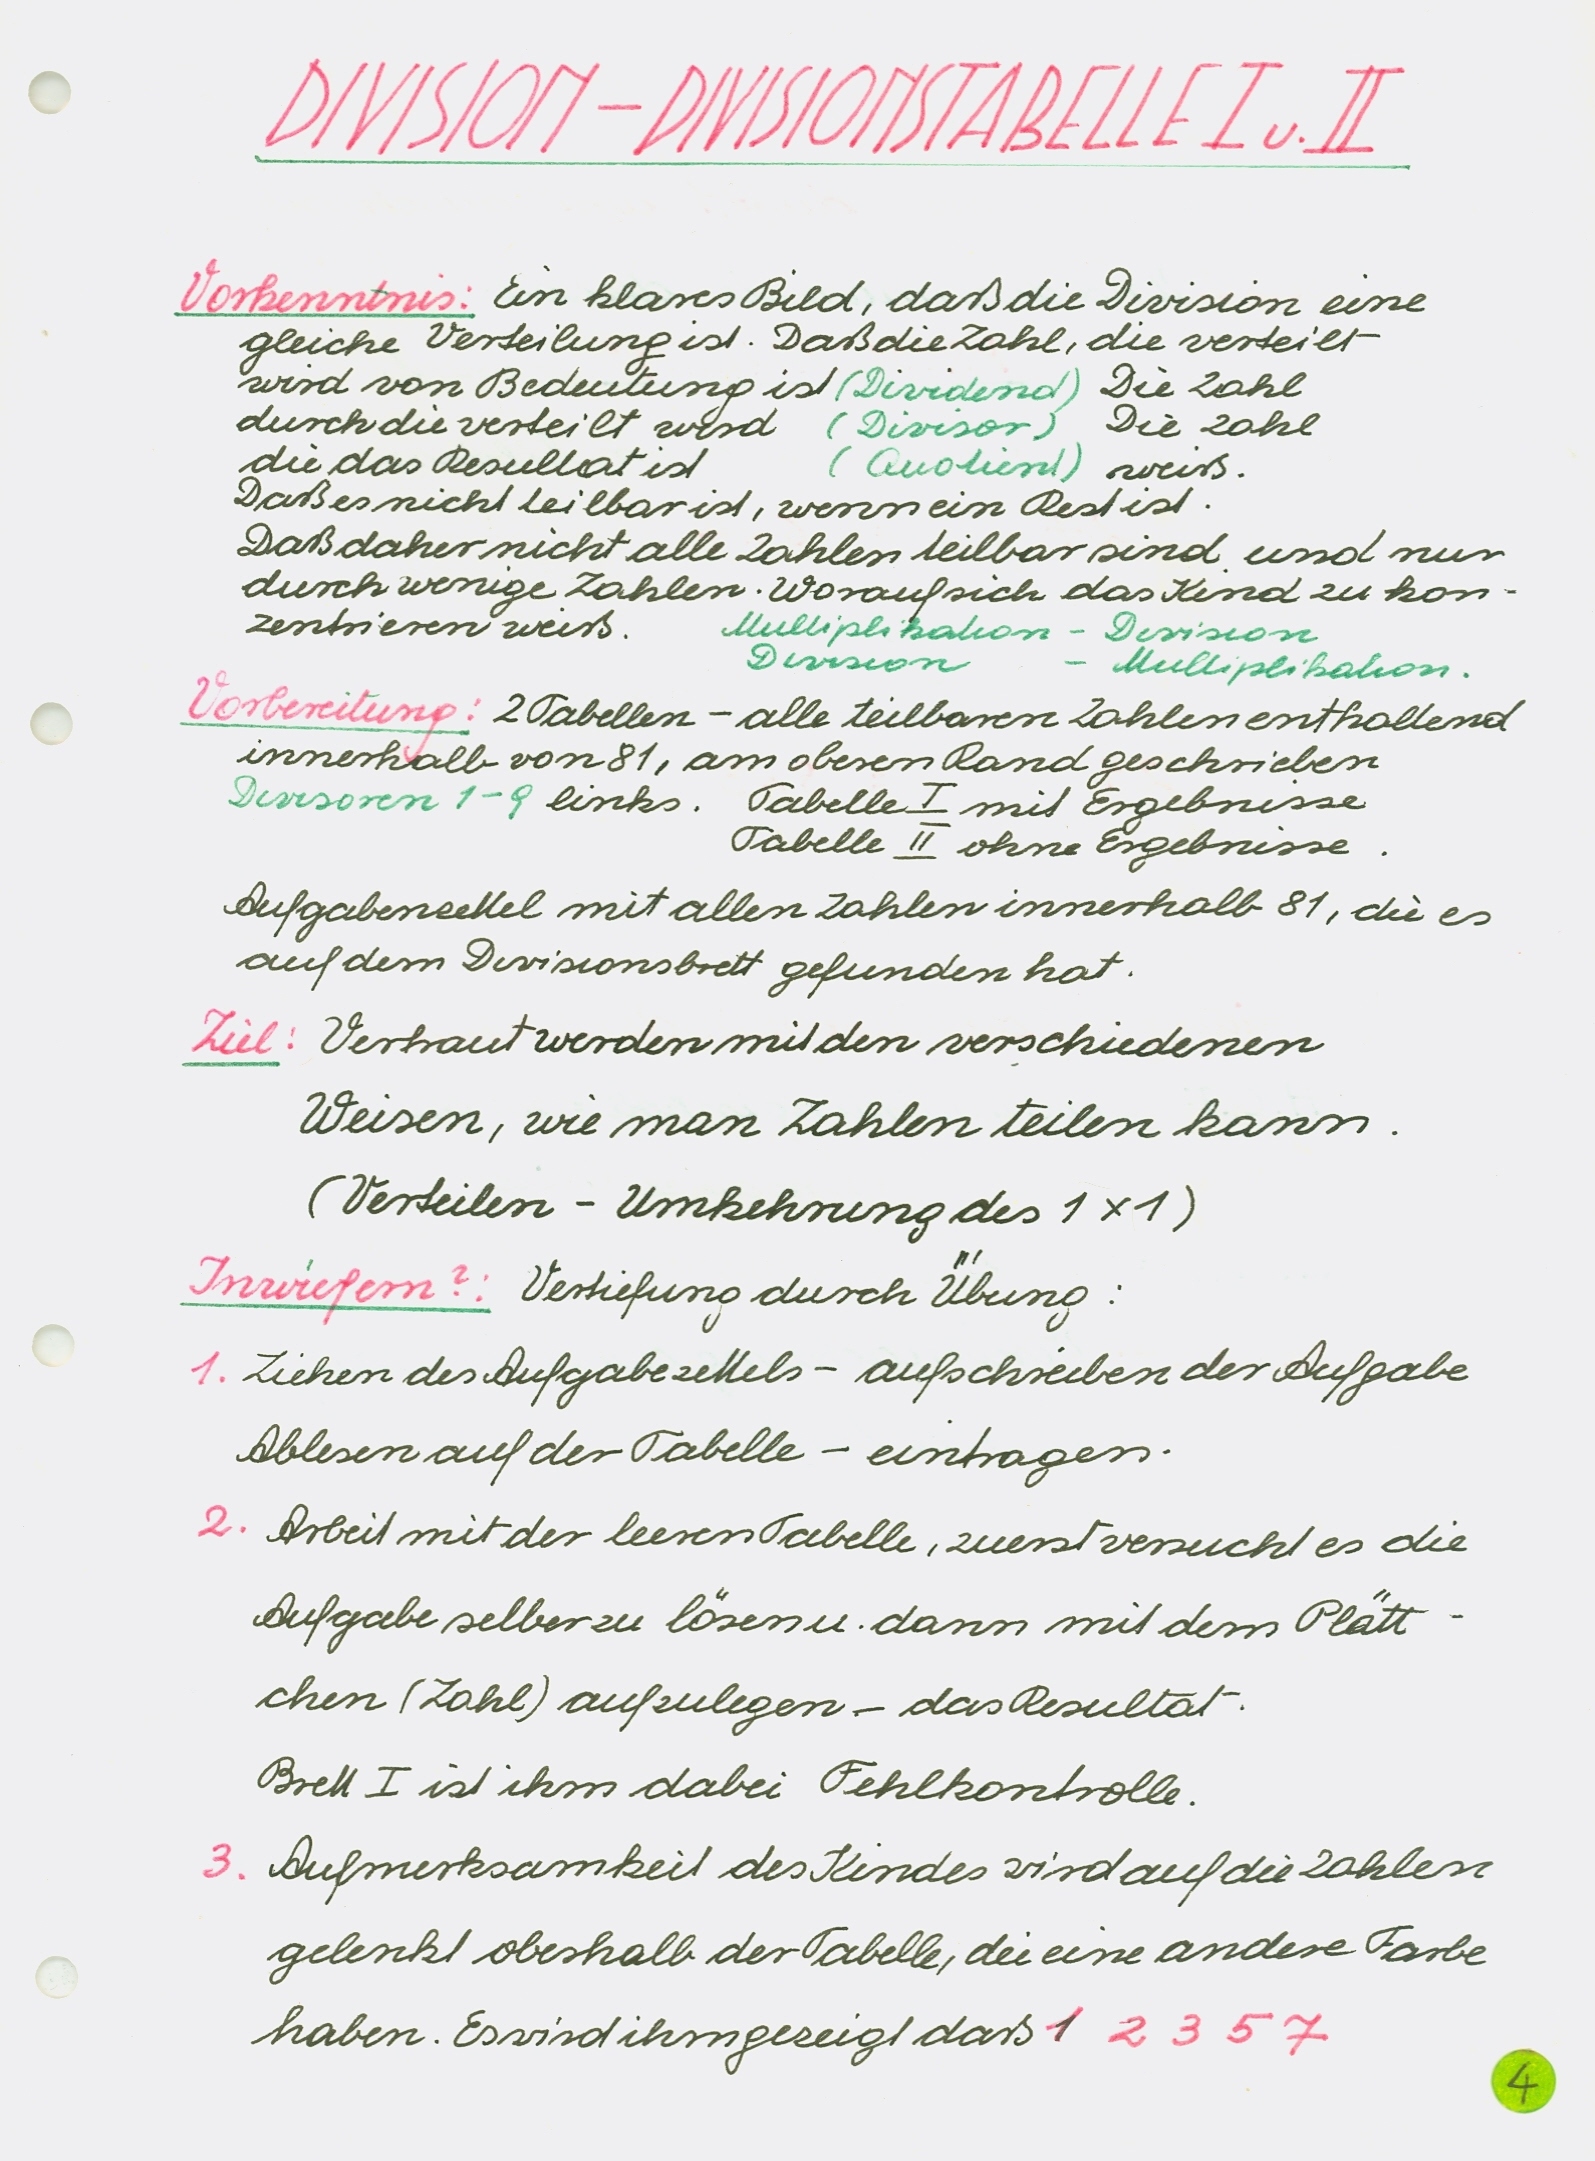 DIVISION – DIVISIONSTABELLE I u. II
Vorkenntnis: Ein klares Bild, daß die Division eine
gleiche Verteilung ist. Daß die Zahl, die verteilt
wird von Bedeutung ist (Dividend) Die Zahl
durch die verteilt wird (Divisor) Die Zahl
die das Resultat ist (Quotient) weiß.
Daß es nicht teilbar ist, wenn ein Rest ist.
Daß daher nicht alle Zahlen teilbar sind und nur
durch wenige Zahlen. Worauf sich das Kind zu kon-
zentrieren weiß. Multiplikation – Division
Division – Multiplikation.
Vorbereitung: 2 Tabellen – alle teilbaren Zahlen enthaltend
innerhalb von 81, am oberen Rand geschrieben
Divisoren 1–9 links. Tabelle I mit Ergebnisse
Tabelle II ohne Ergebnisse.
Aufgabenzettel mit allen Zahlen innerhalb 81, die es
auf dem Divisionsbrett gefunden hat.
Ziel: Vertraut werden mit den verschiedenen
Weisen, wie man Zahlen teilen kann.
(Verteilen – Umkehrung des 1 x 1)
Inwiefern?: Vertiefung durch Übung:
1. Ziehen des Aufgabezettels – aufschreiben der Aufgabe
Ablesen auf der Tabelle – eintragen.
2. Arbeit mit der leeren Tabelle, zuerst versucht es die
Aufgabe selber zu lösen u. dann mit dem Plätt-
chen (Zahl) aufzulegen – das Resultat.
Brett I ist ihm dabei Fehlkontrolle.
3. Aufmerksamkeit des Kindes wird auf die Zahlen
gelenkt oberhalb der Tabelle, die eine andere Farbe
haben. Es wird ihm gezeigt daß 1 2 3 5 7
4